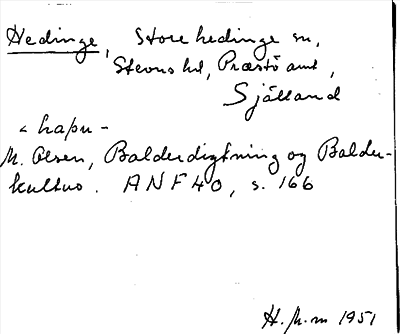 Hedinge, Store hedinge sn,
Stevns hd, Præstö amt,
Själland
< haþu -
M. Olsen, Balderdigtning og Balder-
kultus. ANF 40, s. 166
H. M-m 1951